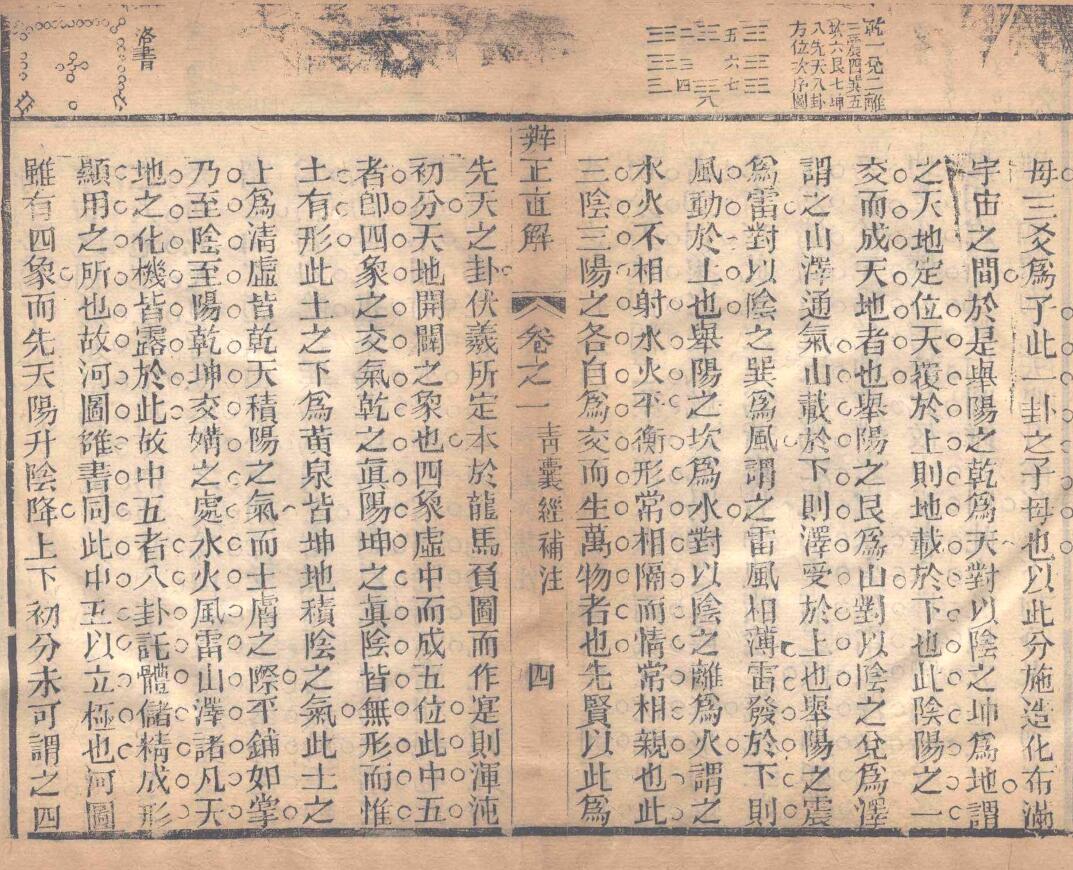 乾一兌二離
三震四巽五
坎六艮七坤
八先天八卦
方位次序圖
五 六 七
二 三 四 八
洛書
母三爻爲子此一卦之子母也以此分施造化布滿
宇宙之間於是舉陽之乾爲天對以陰之坤爲地謂
之天地定位天覆於上則地載於下也此陰陽之一
交而成天地者也舉陽之艮爲山對以陰之兌爲澤
謂之山澤通氣山載於下則澤受於上也舉陽之震
爲雷對以陰之巽爲風謂之雷風相薄雷發於下則
風動於上也舉陽之坎爲水對以陰之離爲火謂之
水火不相射水火平衡形常相隔而情常相親也此
三陰三陽之各自爲交而生萬物者也先賢以此爲
辨正直解 卷之一 青囊經補注 四
先天之卦伏羲所定本於龍馬負圖而作寔則渾沌
初分天地開闢之象也四象虛中而成五位此中五
者卽四象之交氣乾之眞陽坤之眞陰皆無形而惟
土有形此土之下爲黃泉皆坤地積陰之氣此土之
上爲清虛皆乾天積陽之氣而土膚之際平鋪如掌
乃至陰至陽乾坤交媾之處水火風雷山澤諸凡天
地之化機皆露於此故中五者八卦託體儲精成形
顯用之所也故河圖雒書同此中五以立極也河圖
雖有四象而先天陽升陰降上下初分未可謂之四